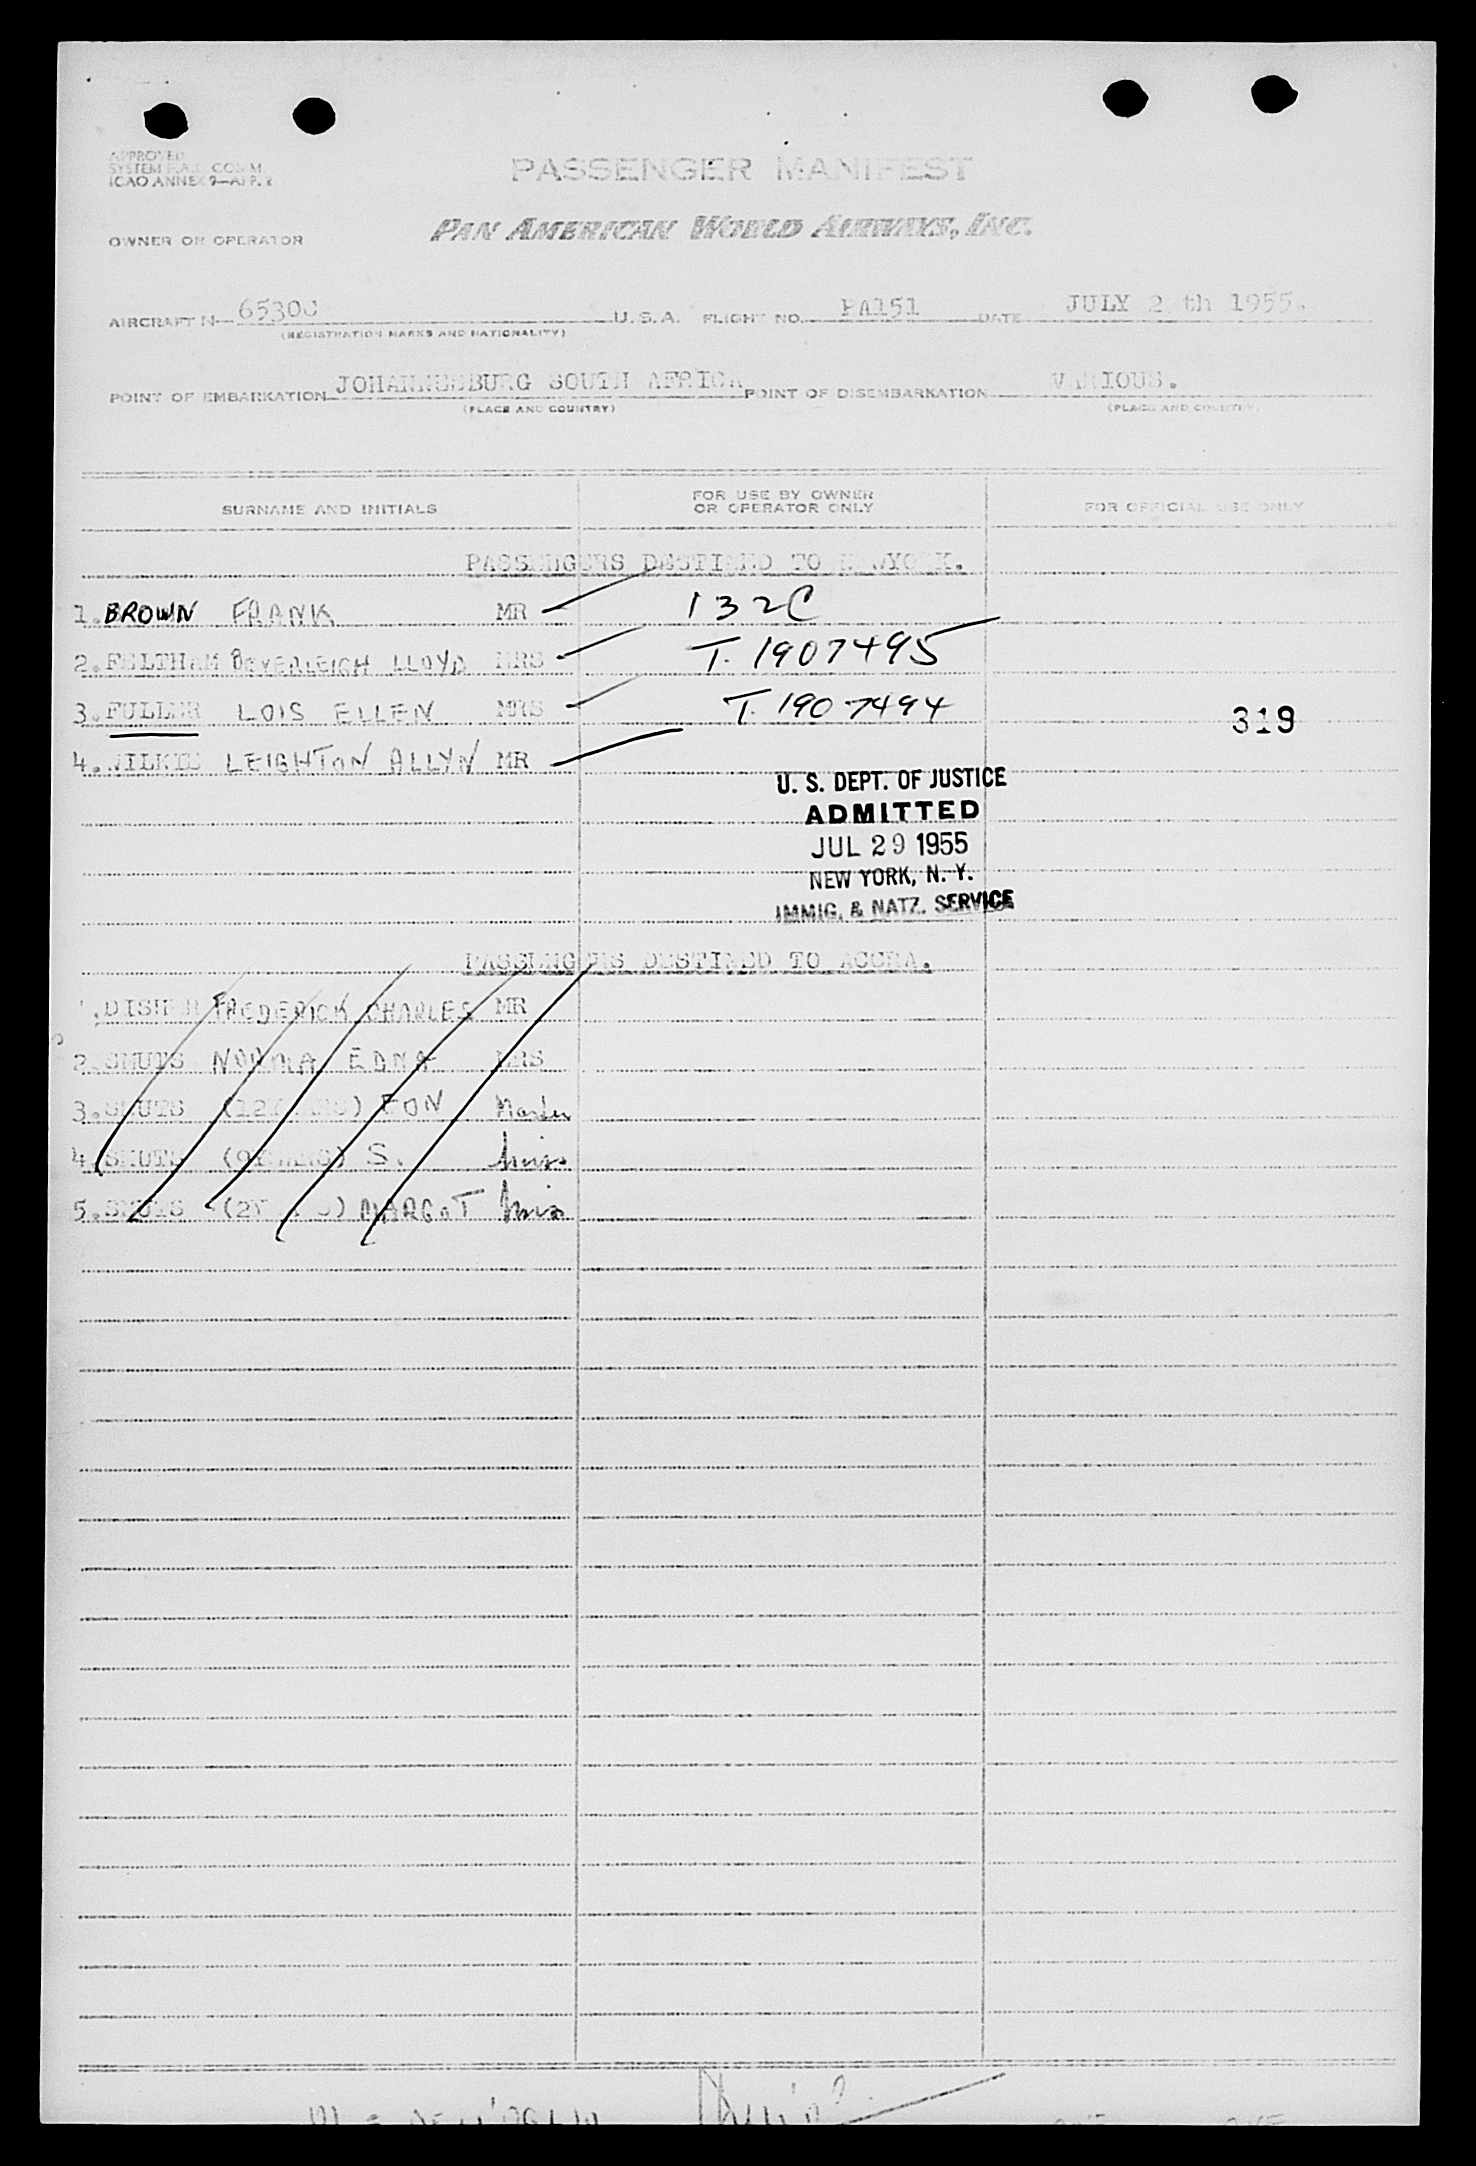 APPROVED
SYSTEM COMM.
ICAO ANNEX 9—APP.
PASSENGER MANIFEST
OWNER OR OPERATOR PAN AMERICAN WORLD AIRWAYS, INC.
AIRCRAFT N— U. S. A. FLIGHT NO. PA151 DATE JULY 2 th 1955.
(REGISTRATION MARKS AND NATIONALITY)
POINT OF EMBARKATION JOHANNESBURG SOUTH AFRICA POINT OF DISEMBARKATION VARIOUS.
(PLACE AND COUNTRY) (PLACE AND COUNTRY)
SURNAME AND INITIALS FOR USE BY OWNER OR OPERATOR ONLY FOR OFFICIAL USE ONLY
PASSENGERS DESTINED TO NEWYORK.
1. BROWN FRANK MR 132C
2. FELTHAM BEVERLEIGH LLOYD MRS T. 1907495
3. FULLER LOIS ELLEN MRS T. 1907494 319
4. WILKIE LEIGHTON ALLYN MR
U. S. DEPT. OF JUSTICE
ADMITTED
JUL 29 1955
NEW YORK, N. Y.
IMMIG. & NATZ. SERVICE
PASSENGERS DESTINED TO ACCRA.
FREDERICK CHARLES MR
2. SMUTS NORMA EDNA MRS
3. SMUTS (12 YEARS) Master
4. SMUTS S. Miss
5. SMUTS MARGOT Miss